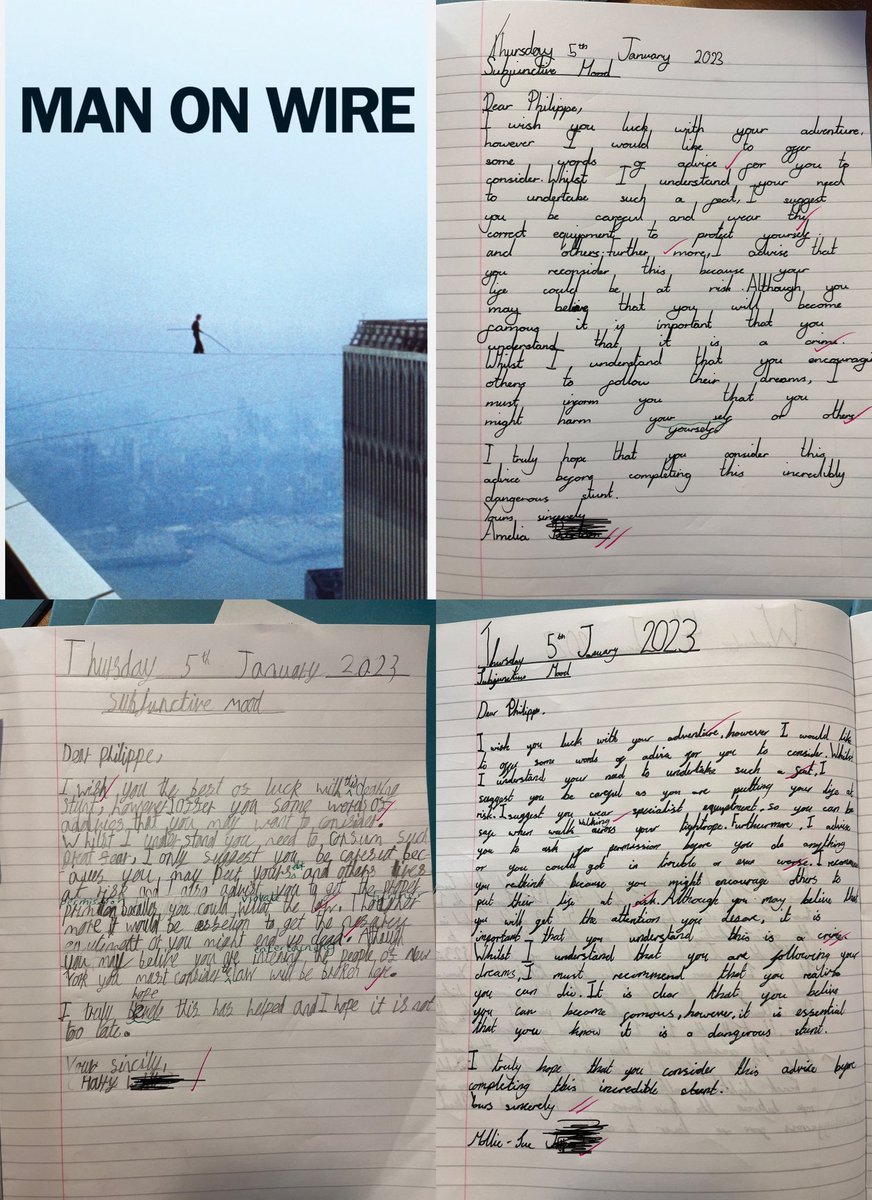 MAN ON WIRE
Thursday 5th January 2023
Subjunctive Mood
Dear Philippe,
I wish you luck with your adventure,
however I would like to offer
some words of advice for you to
consider. Whilst I understand your need
to undertake such a feat, I suggest
you be careful and wear the
correct equipment to protect yourself
and others. Further more, I advise that
you reconsider this because your
life could be at risk. Although you
may believe that you will become
famous it is important that you
understand that it is a crime.
Whilst I understand that you encouragi
others to follow their dreams, I
must inform you that you
might harm your self or others
yourself
I truly hope that you consider this
advice before completing this incredibly
dangerous stunt.
Yours sincerely
Amelia
Thursday 5th January 2023
Subjunctive mood
Dear Philippe,
I wish you the best of luck with this
stunt, however I offer you some words of
that you may want to consider.
Whilst I understand you need to such
great feat, I only suggest you be carefull bec
aues you may put and others lives
at risk and I also advise you to get the proper
you could the law.
more it would be to get the
or you might end up dead. Although
you may believe you are the people of New
York you most consider law will be broken
hope
I truly this has helped and I hope it is not
too late.
Your sincilly,
Harry
Thursday 5th January 2023
Subjunctive Mood
Dear Philippe.
I wish you luck with your adventure, however I would like
to offy some words of advice for you to consider. Whilst
I understand your need to undertake such a feat, I
suggest you be careful as you are putting your life at
risk. I suggest you wear specialist equipment so you can be
walking
safe when walk across your tightrope. Furthermore, I advise
you to ask for permission before you do anything
or you could get in trouble or even worse. I recomend
you rethink because you might encourage others to
put their life at risk. Although you may belive that
you will get the attention you desave, it is
important that you understand this is a crime.
Whilst I understand that you are following your
dreams, I must recommend that you realise
you can die. It is clear that you belive
you can become famous, however, it is essential
that you know it is a dangerous stunt.
I truly hope that you consider this advice before
completing this incredible stunt.
Yours sincerely
Mollie-Sue